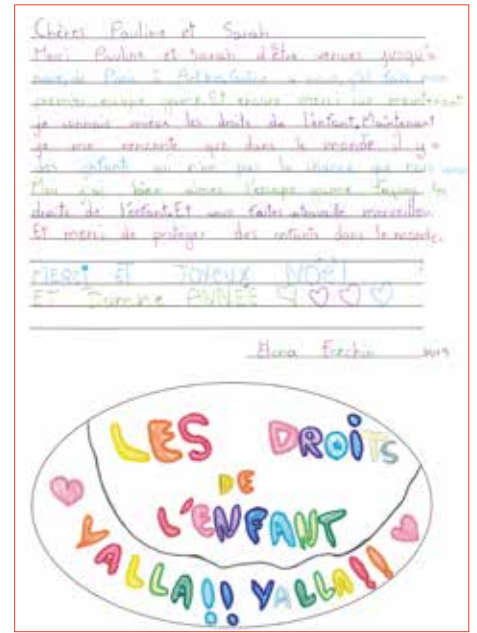 Chères Pauline et Sarah
Merci Pauline et Sarah d'être venues jusqu'à
nous, de Paris à
premier escape game. Et encore merci car maintenant
je connais mieux les droits de l'enfant. Maintenant
je me renconte que dans le monde il y a
des enfants qui n'on pas la chance que nous avons
Moi j'ai bien aimes l'escape game
droits de l'enfant. Et vous faites
Et merci de protéger des enfants dans le monde.
MERCI ET JOYEUX NOËL
ET ANNÉE
2019
LES DROITS
DE
L'ENFANT
YALLA!! YALLA!!